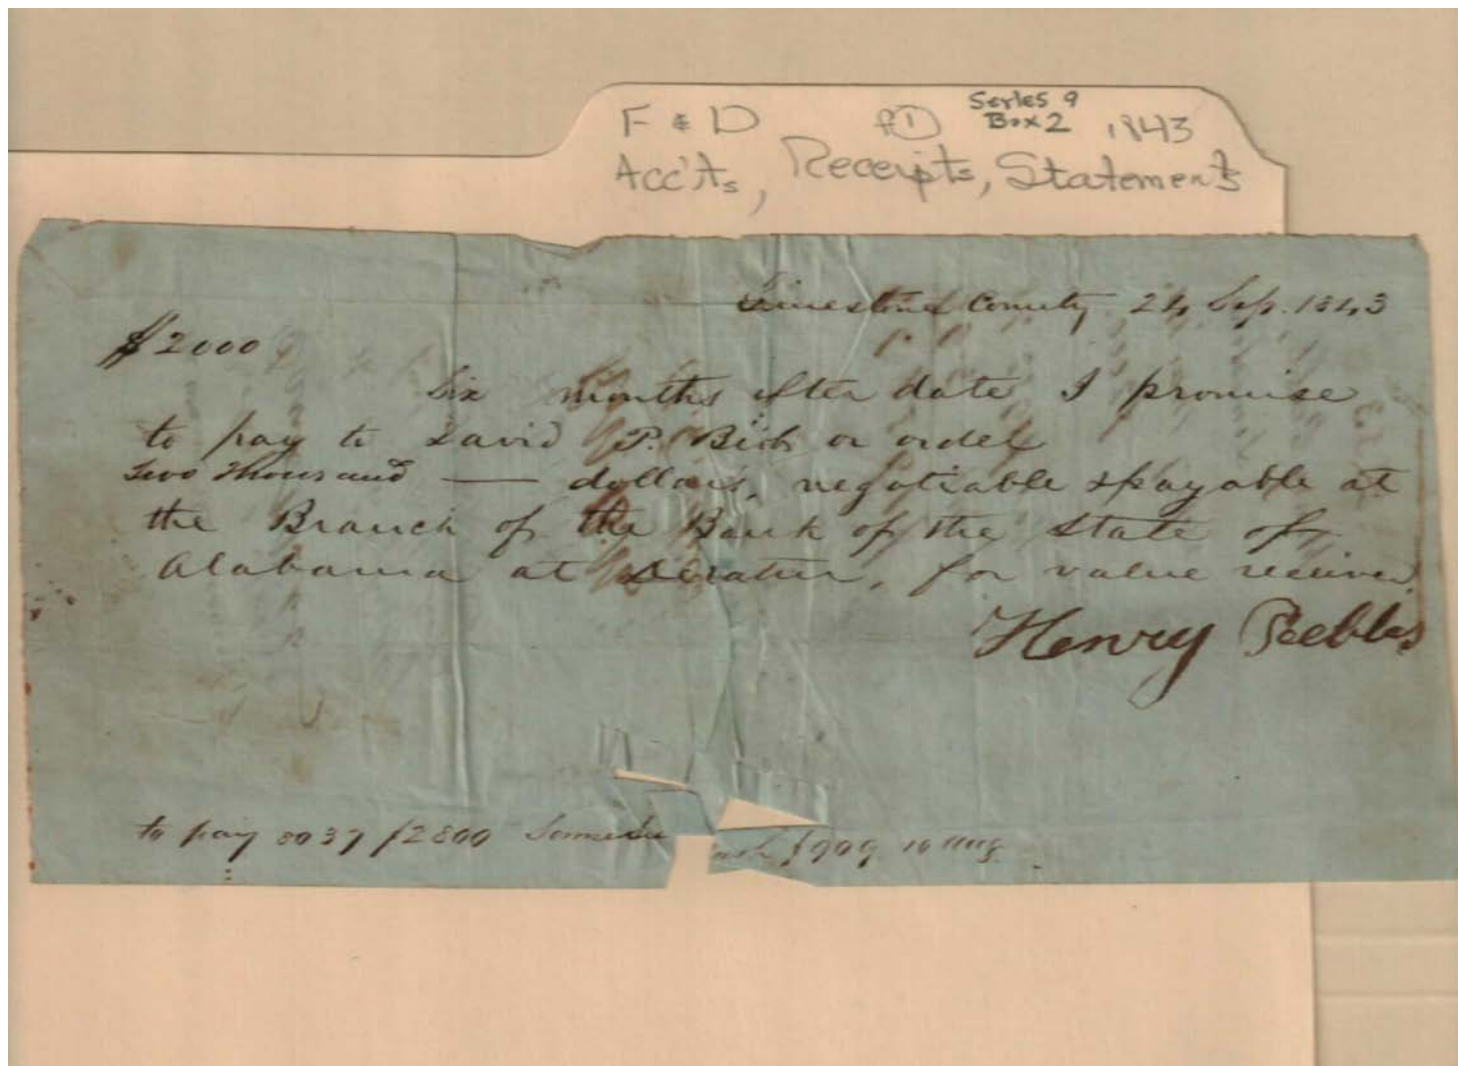 F & D f① Series 9
Box 2 1843
Acc'ts, Receipts, Statements
Limestone County 24 Sep. 1843
$2000
Six months after date I promise
to pay to David P. or order
Two thousand — dollars, negotiable & payable at
the Branch of the Bank of the State of
Alabama at Decatur, for value received
Henry Peebles
to pay 8037 $2800 $909 10 Aug